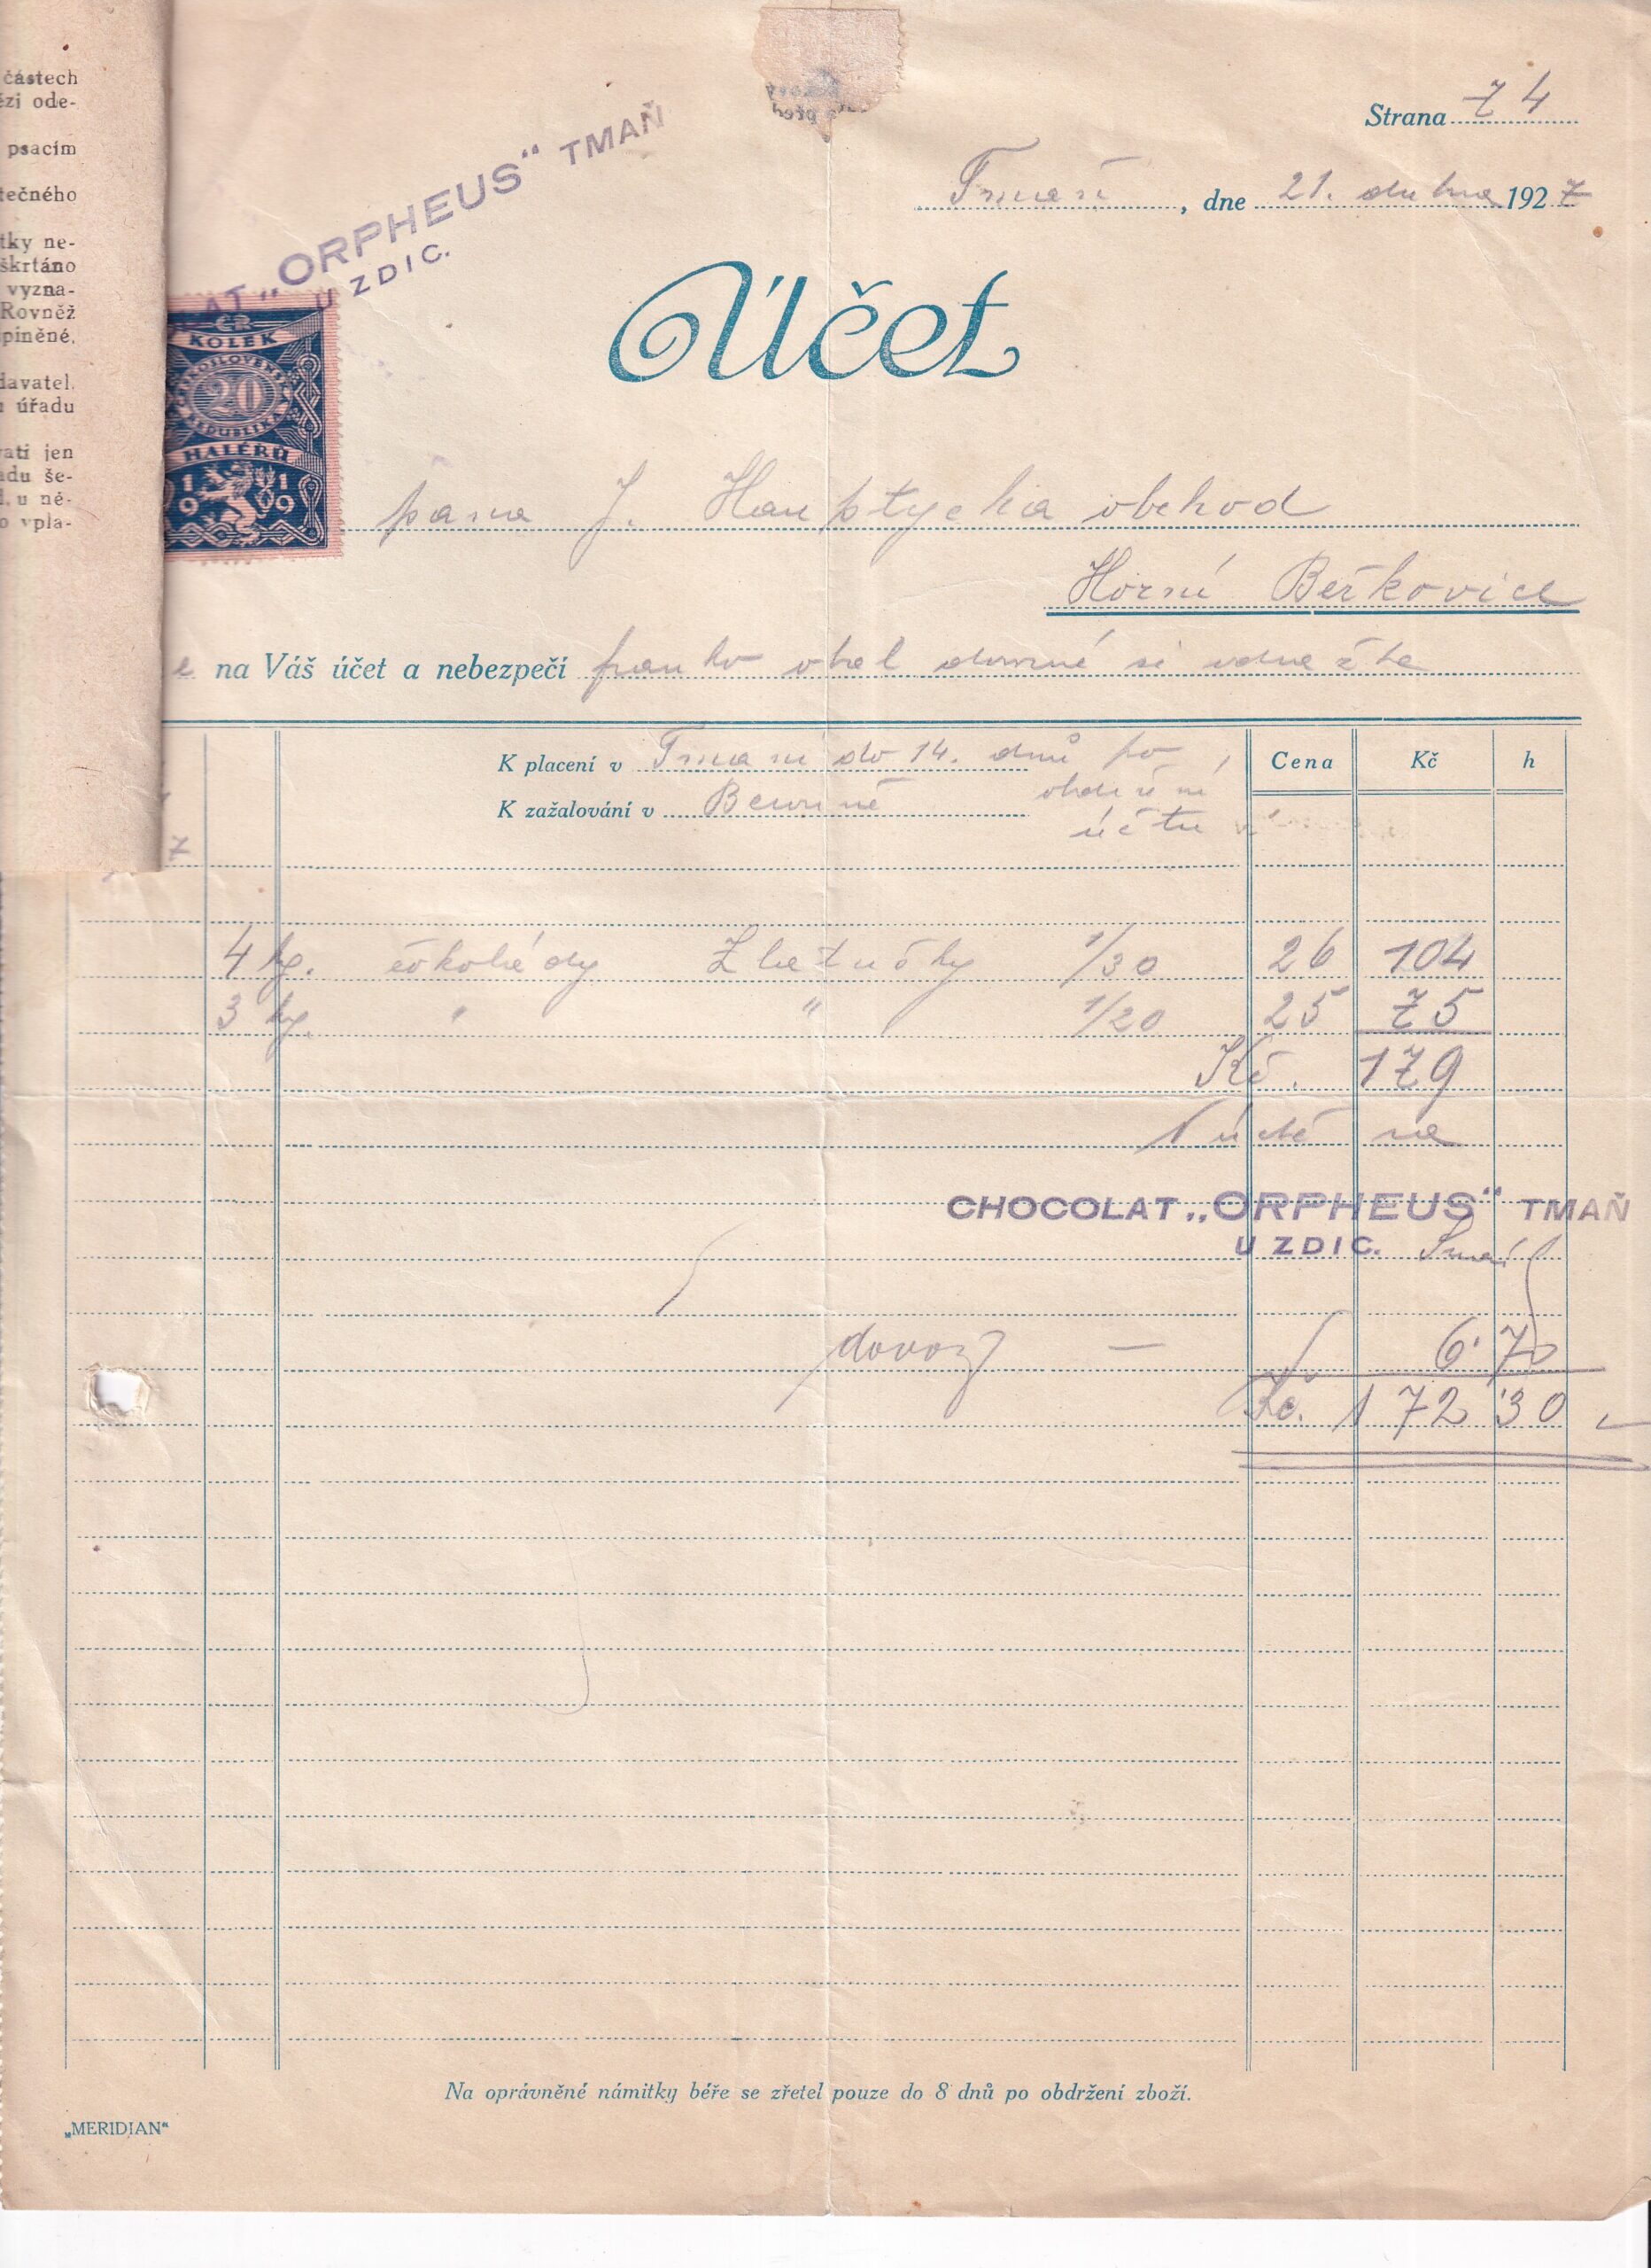 částech
ězi ode-
psacím
tečného
tky ne-
škrtáno
vyzna-
Rovněž
piněné,
davatel.
úřadu
ati jen
adu še-
u ně-
o vpla-
Strana 74
Tmaň, dne 21. dubna 1927
AT „ORPHEUS“ TMAŇ
U ZDIC.
Účet
ČR
KOLEK
20
REPUBLIKA
HALÉŘŮ
1919
pana J. Hauptycha obchod
Horní Beřkovice
na Váš účet a nebezpečí franko obal dovozné si odražte
K placení v Tmani do 14. dnů po
obdržení
účtu
K zažalování v Berouně
Cena Kč h
7
4 kg. čokolády Zlatušky 1/30 26 104
3 kg. " " 1/20 25 75
Kč. 179
V úctě
CHOCOLAT „ORPHEUS“ TMAŇ
U ZDIC.
dovoz — 6·70
Kč. 172 30
Na oprávněné námitky béře se zřetel pouze do 8 dnů po obdržení zboží.
„MERIDIAN“